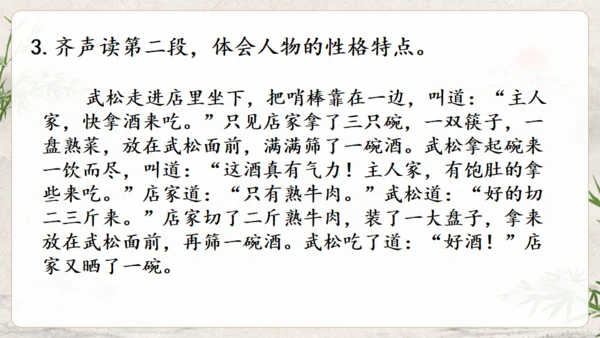 3. 齐声读第二段，体会人物的性格特点。
武松走进店里坐下，把哨棒靠在一边，叫道：“主人
家，快拿酒来吃。”只见店家拿了三只碗，一双筷子，一
盘熟菜，放在武松面前，满满筛了一碗酒。武松拿起碗来
一饮而尽，叫道：“这酒真有气力！主人家，有饱肚的拿
些来吃。”店家道：“只有熟牛肉。”武松道：“好的切
二三斤来。”店家切了二斤熟牛肉，装了一大盘子，拿来
放在武松面前，再筛一碗酒。武松吃了道：“好酒！”店
家又晒了一碗。